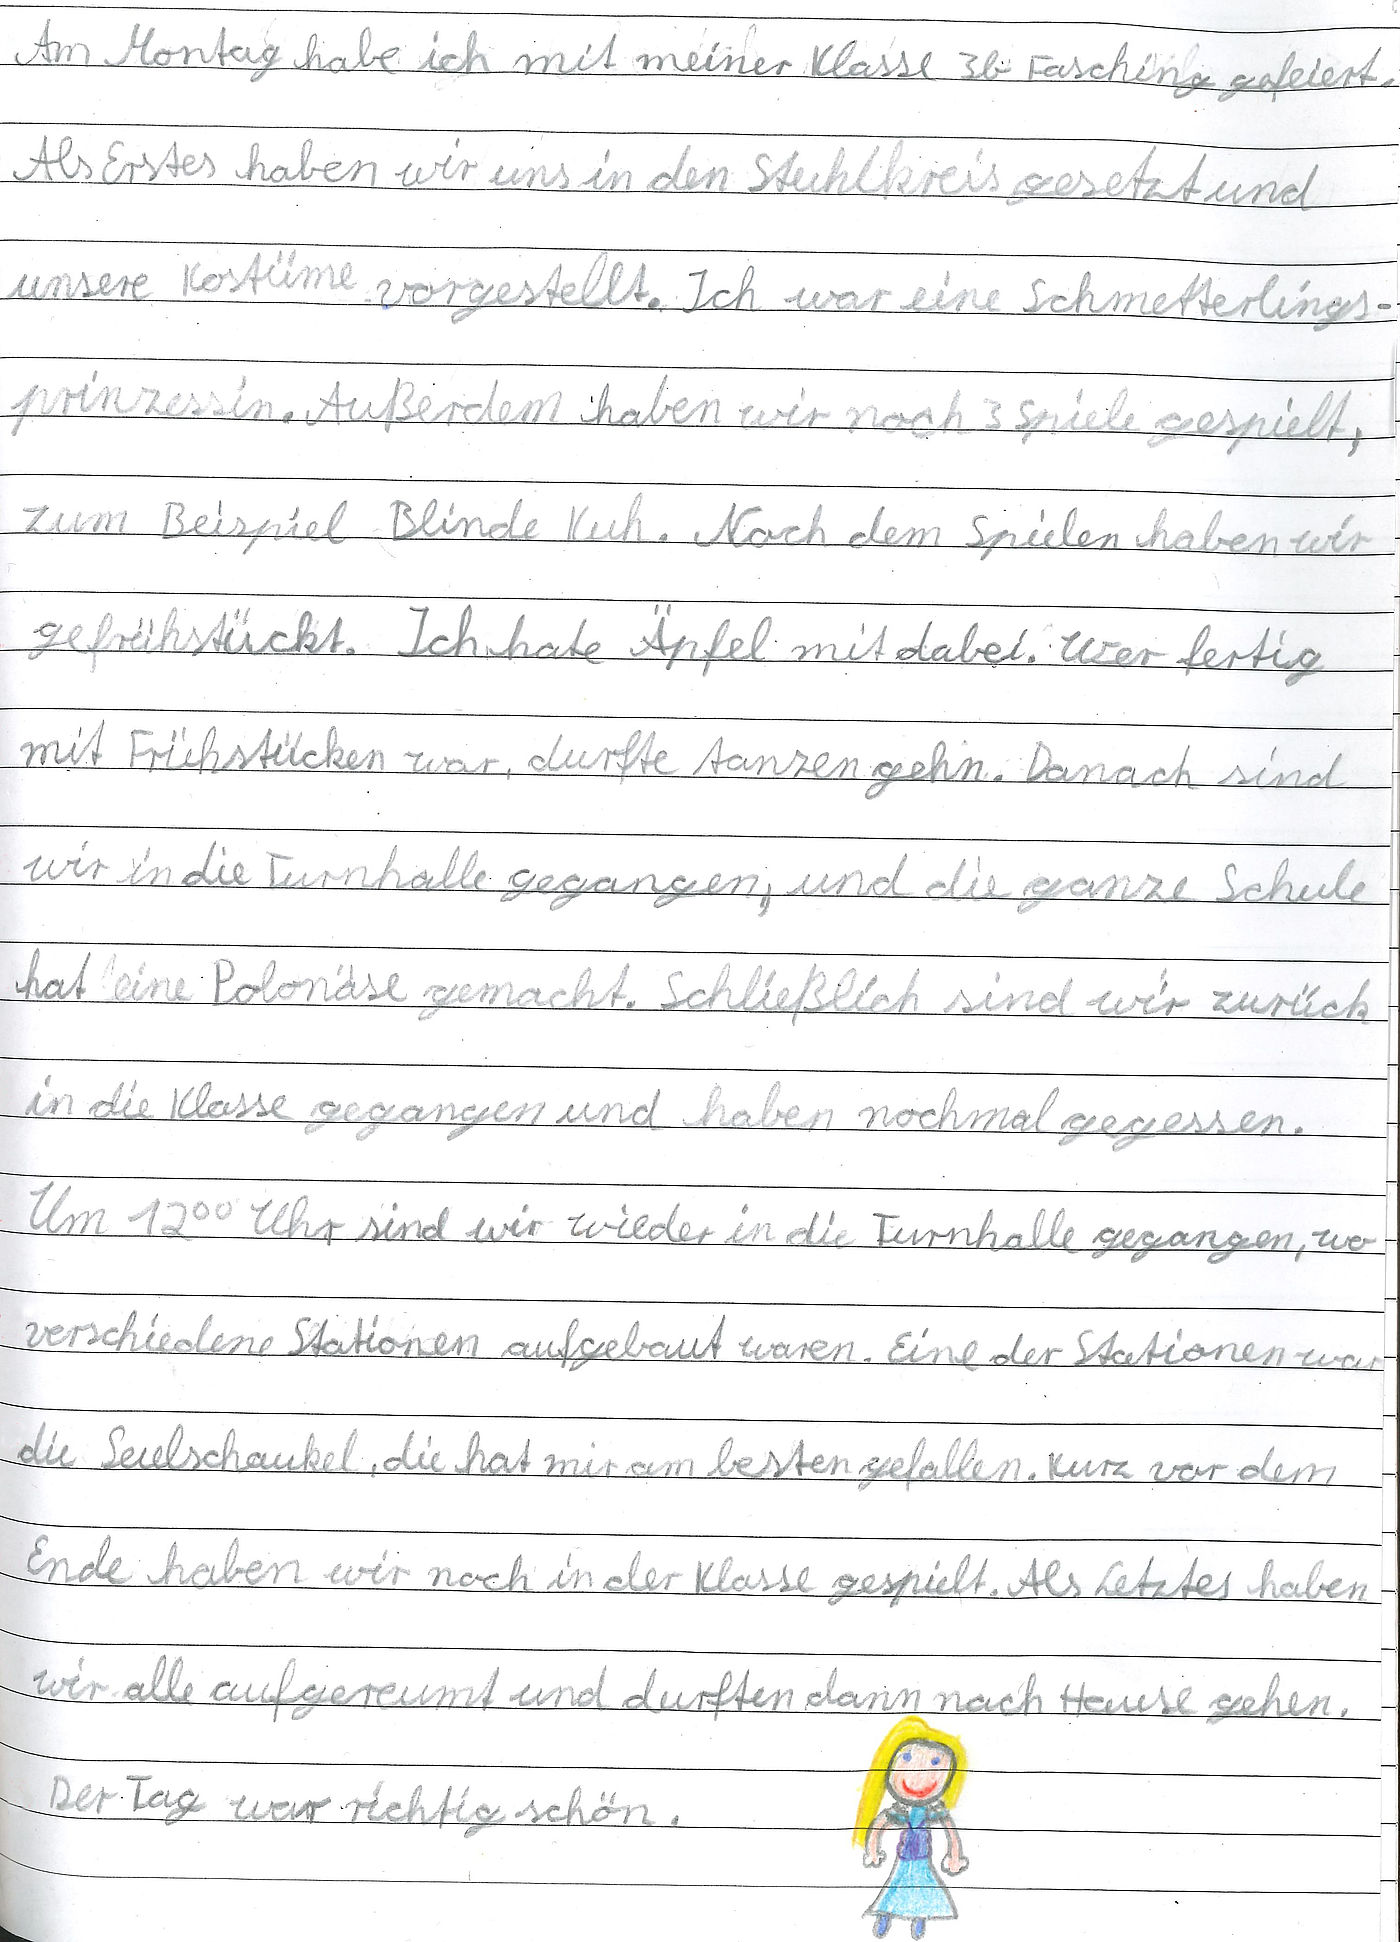 Am Montag habe ich mit meiner Klasse 3b Fasching gefeiert.
Als Erstes haben wir uns in den Stuhlkreis gesetzt und
unsere Kostüme vorgestellt. Ich war eine Schmetterlings-
prinzessin. Außerdem haben wir noch 3 Spiele gespielt,
zum Beispiel Blinde Kuh. Nach dem Spielen haben wir
gefrühstückt. Ich hate Äpfel mit dabei. Wer fertig
mit Frühstücken war, durfte tanzen gehn. Danach sind
wir in die Turnhalle gegangen, und die ganze Schule
hat eine Polonäse gemacht. Schließlich sind wir zurück
in die Klasse gegangen und haben nochmal gegessen.
Um 12⁰⁰ Uhr sind wir wieder in die Turnhalle gegangen, wo
verschiedene Stationen aufgebaut waren. Eine der Stationen war
die Seielschaukel, die hat mir am besten gefallen. Kurz vor dem
Ende haben wir noch in der Klasse gespielt. Als Letztes haben
wir alle aufgereumt und durften dann nach Hause gehen.
Der Tag war richtig schön.